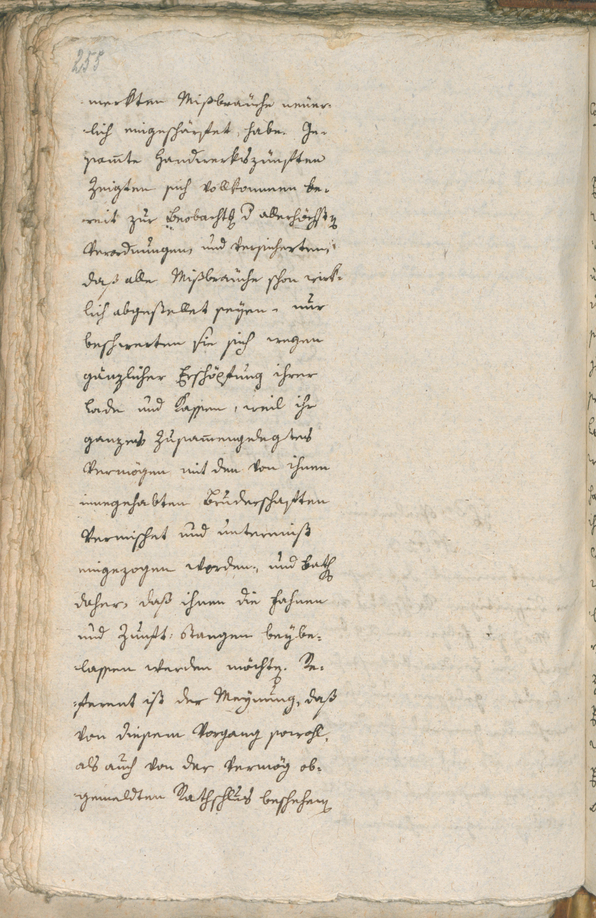 255
merkten Mißbräuche neuer-
lich eingeschärfet habe. In-
samte Handwerkszünften
Zeigten sich vollkommen be-
reit zur Beobachtg d allerhöchsten
Verordnungen, und versicherten,
daß alle Mißbräuche schon wirk-
lich abgestellet seyen, nur
beschwerten sie sich wegen
gänzlicher Erschöpfung ihrer
Lade und Kassen, weil ihr
ganzes Zusammengelegtes
Vermögen mit den von ihnen
innegehabten Bruderschaften
Vermischet und untermischt
eingezogen worden, und bath
daher, daß ihnen die Fahnen
und Zunft: Stangen beybe-
lassen werden möchte. Re-
ferent ist der Meynung, daß
von diesem Vorgang sowohl,
als auch von der vermög ob-
gemeldten Rathschlus beschehen